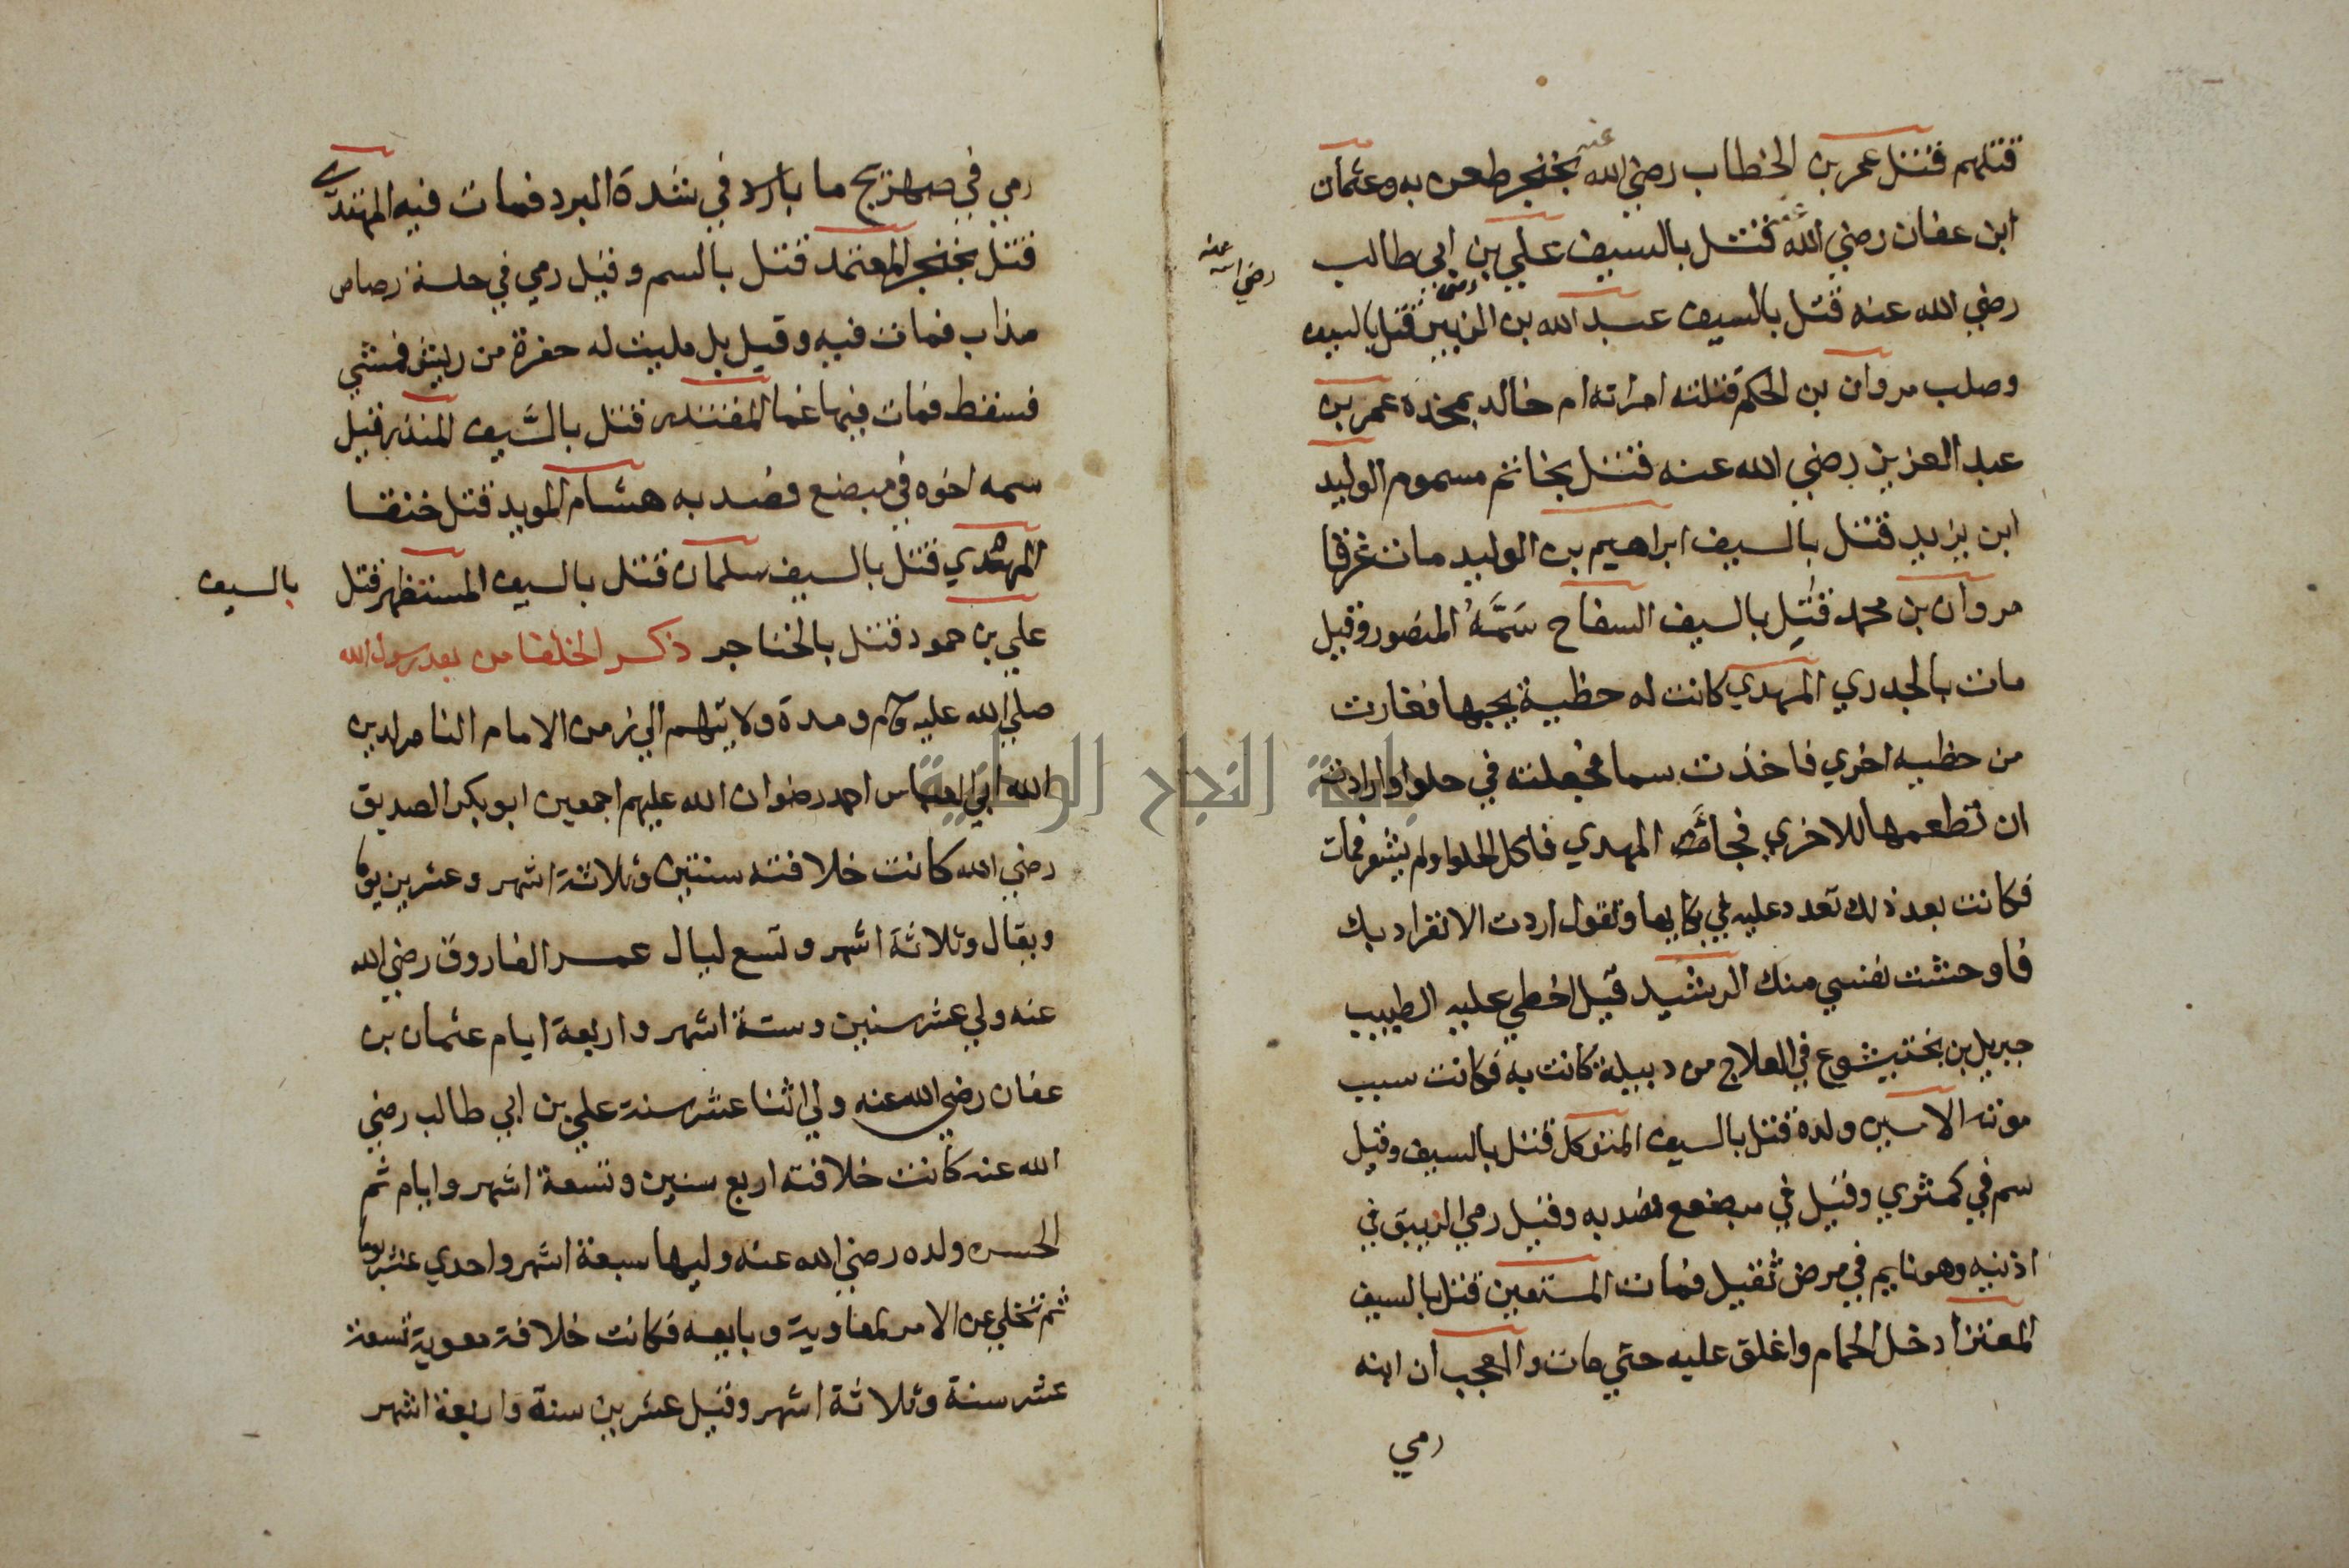 قتلهم فقتل عمر بن الخطاب رضي الله عنه بخنجر طعن به وعثمان
ابن عفان رضي الله عنه قتل بالسيف علي بن ابي طالب
رضي الله عنه
رضي الله عنه قتل بالسيف عبد الله بن الزبير قتل بالسيف
وصلب مروان بن الحكم قتلته امراته ام خالد بمخدة عمر بن
عبد العزيز رضي الله عنه قتل بخاتم مسموم الوليد
ابن يزيد قتل بالسيف ابراهيم بن الوليد مات غرقا
مروان بن محمد قتل بالسيف السفاح سمه المنصور وقيل
مات بالجدري المهدي كانت له حظية يحبها فغارت
من حظيه اخري فاخذت سما فجعلته في حلوا وارادت
ان تطعمها للاخري فجا المهدي فاكل الحلوا ولم يشعر فمات
فكانت بعد ذلك تعدد عليه في بكايها وتقول اردت الانفراد بك
فاوحشت نفسي منك الرشيد قيل اخطي عليه الطبيب
جبريل بن بختيشوع في العلاج من دبيلة كانت به فكانت سبب
موته الامين ولده قتل بالسيف المتوكل قتل بالسيف وقيل
سم في كمثري وقيل في مبضع فصد به وقيل رمي الزيبق في
اذنيه وهو نايم في مرض ثقيل فمات المستعين قتل بالسيف
المعتز ادخل الحمام واغلق عليه حتي مات والعجب ان ابنه
رمي
رمي في صهريج ما بارد في شدة البرد فمات فيه المهتدي
قتل بخنجر المعتمد قتل بالسم وقيل رمي في رصاص
مذاب فمات فيه وقيل بل مليت له حفرة من ريش فمشي
فسقط فمات فيها غما المقتدر قتل بالسيف المنذر قيل
سمه اخوه في مبضع فصد به هشام المويد قتل خنقا
المهدي قتل بالسيف سلمان قتل بالسيف المستظهر قتل
بالسيف
علي بن حمود قتل بالخناجر ذكر الخلفا من بعد رسول الله
صلي الله عليه وسلم ومدة ولايتهم الي زمن الامام الناصر لدين
الله ابي العباس احمد رضوان الله عليهم اجمعين ابو بكر الصديق
رضي الله كانت خلافته سنتين وثلاثة اشهر وعشرين يوما
ويقال وثلاثة اشهر وتسع ليال عمر الفاروق رضي الله
عنه ولي عشر سنين وستة اشهر واربعة ايام عثمان بن
عفان رضي الله عنه ولي اثنا عشر سنة علي بن ابي طالب رضي
الله عنه كانت خلافته اربع سنين وتسعة اشهر وايام ثم
الحسن ولده رضي الله عنه وليها سبعة اشهر واحدي عشر يوما
ثم تخلي عن الامر لمعاوية وبايعه فكانت خلافة معوية تسعة
عشر سنة وثلاثة اشهر وقيل عشرين سنة واربعة اشهر
النجاح الوطنية